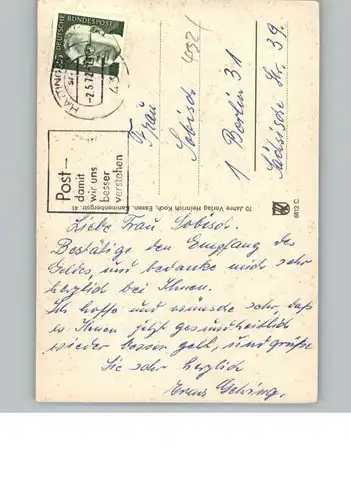 DEUTSCHE BUNDESPOST
HATTINGEN
-2.5.72
Post-
damit
wir uns
besser
verstehen
Frau
Sobisch
1 Berlin 31
Sächsische Str. 39.
70 Jahre Verlag Heinrich Koch, Essen,
6812 C
Liebe Frau Sobisch.
Bestätige den Empfang des
Geldes, und bedanke mich sehr
herzlich bei Ihnen.
Ich hoffe und wünsche sehr, daß
es Ihnen jetzt gesundheitlich
wieder besser geht, und grüße
Sie sehr herzlich